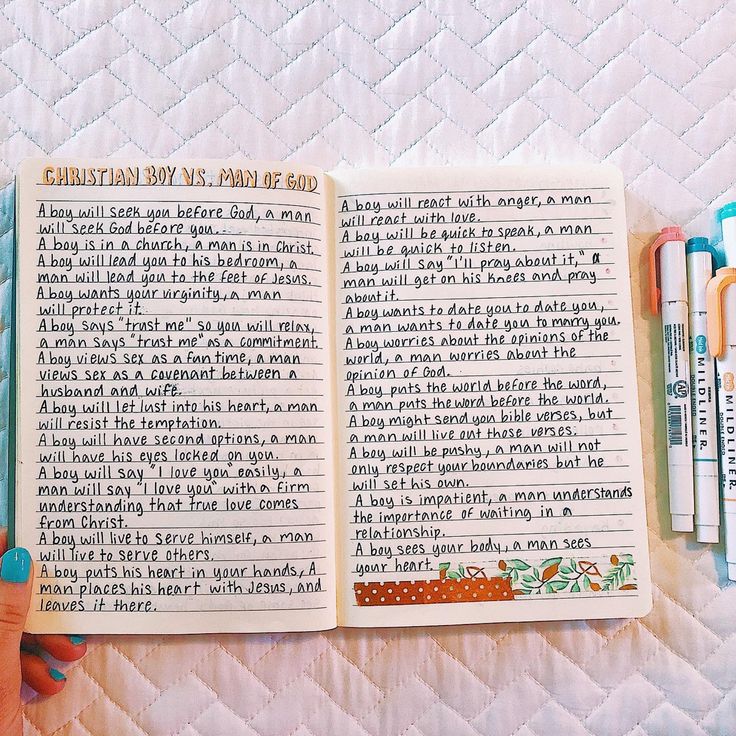 CHRISTIAN BOY VS. MAN OF GOD
A boy will seek you before God, a man
will seek God before you.
A boy is in a church, a man is in Christ.
A boy will lead you to his bedroom, a
man will lead you to the feet of Jesus.
A boy wants your virginity, a man
will protect it.
A boy says "trust me" so you will relax,
a man says "trust me" as a commitment.
A boy views sex as a fun time, a man
views sex as a covenant between a
husband and wife.
A boy will let lust into his heart, a man
will resist the temptation.
A boy will have second options, a man
will have his eyes locked on you.
A boy will say "I love you" easily, a
man will say "I love you" with a firm
understanding that true love comes
from Christ.
A boy will live to serve himself, a man
will live to serve others.
A boy puts his heart in your hands, A
man places his heart with Jesus, and
leaves it there.
A boy will react with anger, a man
will react with love.
A boy will be quick to speak, a man
will be quick to listen.
A boy will say "I'll pray about it," a
man will get on his knees and pray
about it.
A boy wants to date you to date you,
a man wants to date you to marry you.
A boy worries about the opinions of the
world, a man worries about the
opinion of God.
A boy puts the world before the word,
a man puts the word before the world.
A boy might send you bible verses, but
a man will live out those verses.
A boy will be pushy, a man will not
only respect your boundaries but he
will set his own.
A boy is impatient, a man understands
the importance of waiting in a
relationship.
A boy sees your body, a man sees
your heart.
MILDLINER
MILDLINER